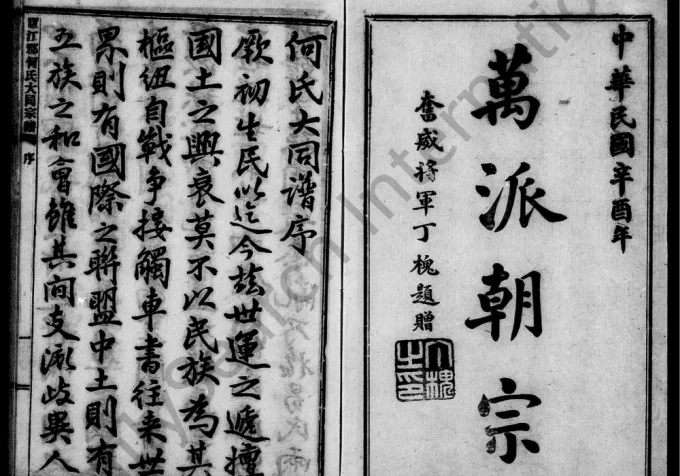 中華民國辛酉年
萬派朝宗
奮威將軍丁槐題贈
丁槐之印
何氏大同譜序
厥初生民以迄今茲世運之遞擅
國土之興衰莫不以民族為其
樞紐自戰爭接觸車書往來世
界則有國際之聯盟中土則有
五族之和會雖其間支派歧異人
廬江郡何氏大同宗譜
序